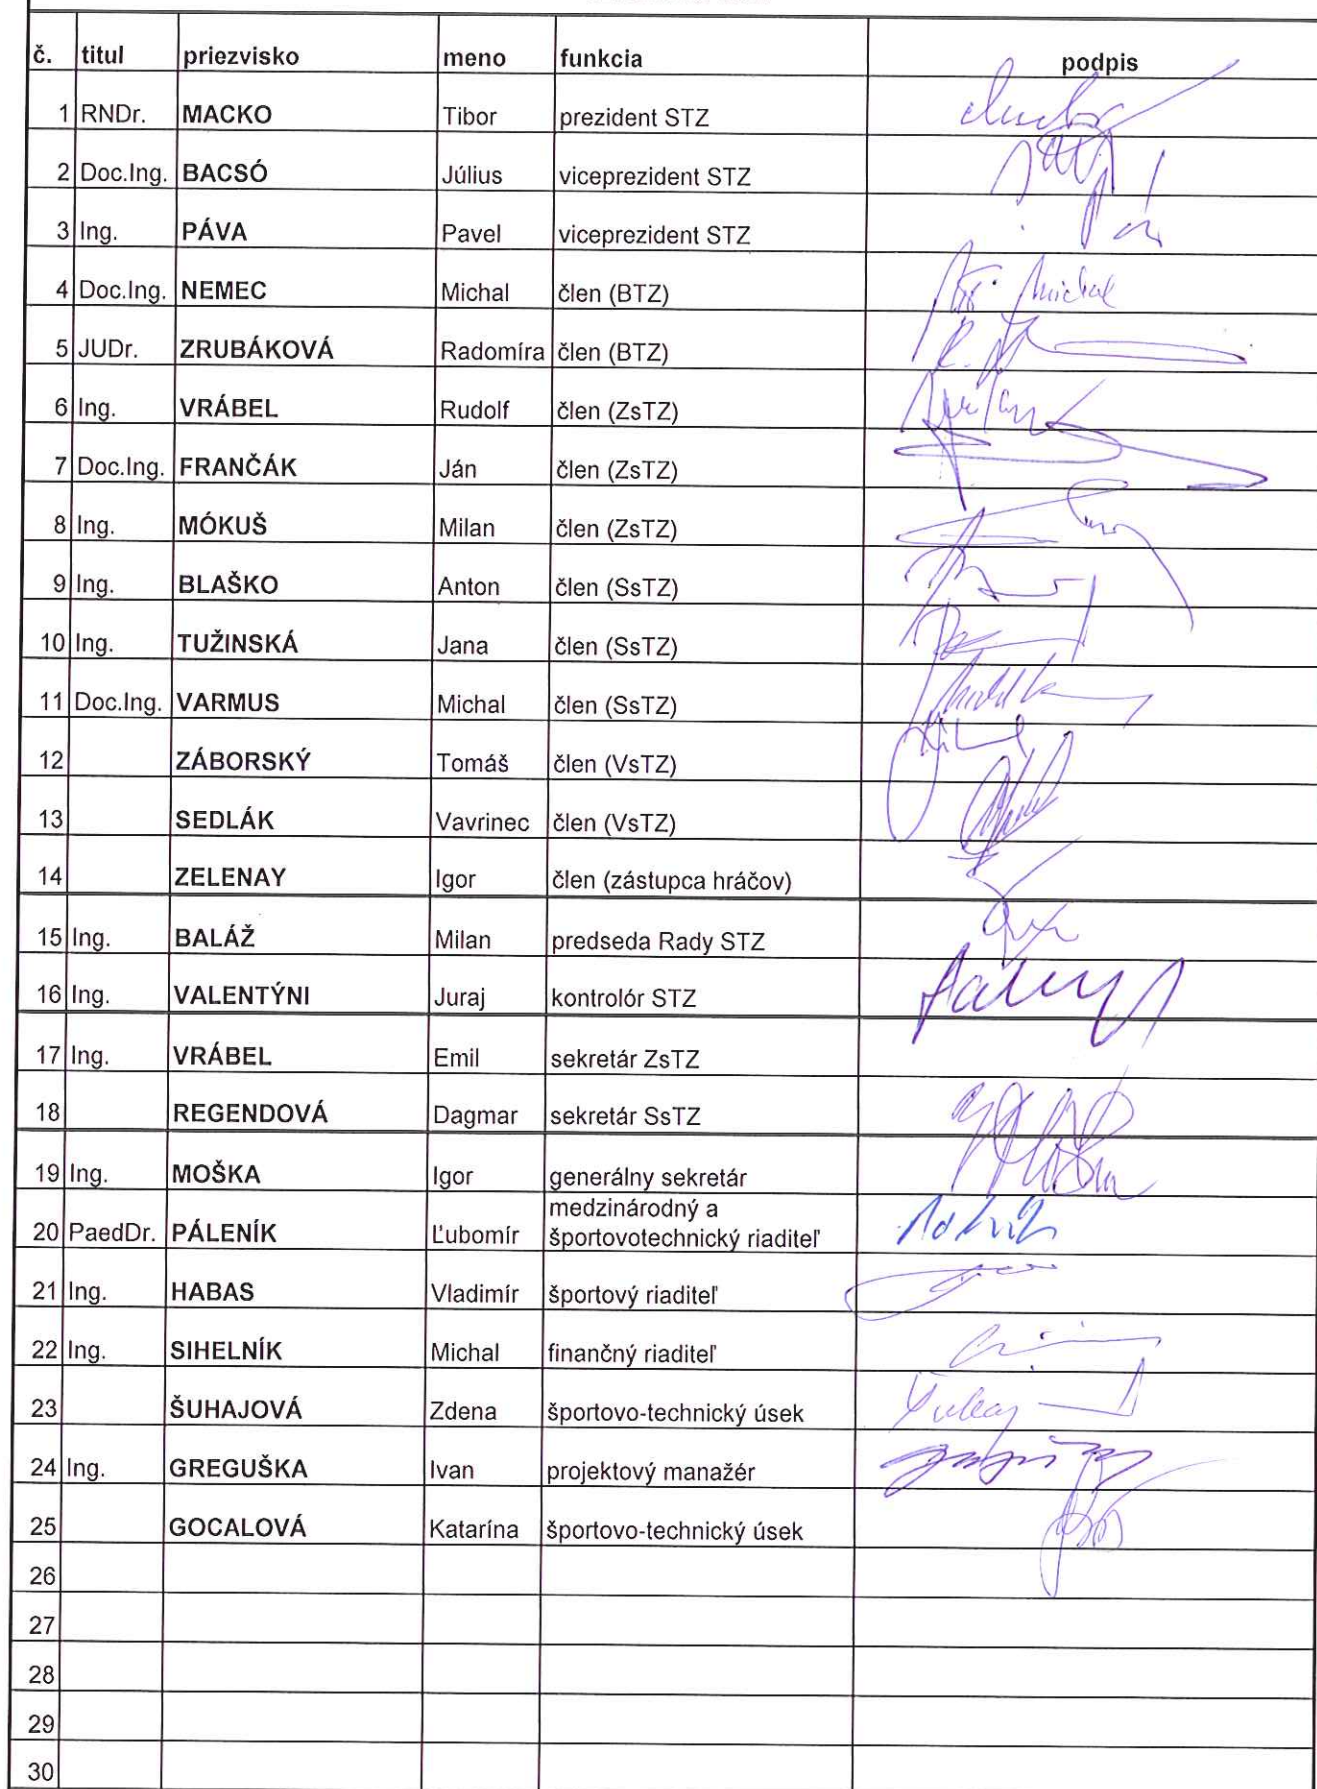 č. titul priezvisko meno funkcia podpis
1 RNDr. MACKO Tibor prezident STZ
2 Doc.Ing. BACSÓ Július viceprezident STZ
3 Ing. PÁVA Pavel viceprezident STZ
4 Doc.Ing. NEMEC Michal člen (BTZ) Michal
5 JUDr. ZRUBÁKOVÁ Radomíra člen (BTZ)
6 Ing. VRÁBEL Rudolf člen (ZsTZ)
7 Doc.Ing. FRANČÁK Ján člen (ZsTZ)
8 Ing. MÓKUŠ Milan člen (ZsTZ)
9 Ing. BLAŠKO Anton člen (SsTZ)
10 Ing. TUŽINSKÁ Jana člen (SsTZ)
11 Doc.Ing. VARMUS Michal člen (SsTZ)
12 ZÁBORSKÝ Tomáš člen (VsTZ)
13 SEDLÁK Vavrinec člen (VsTZ)
14 ZELENAY Igor člen (zástupca hráčov)
15 Ing. BALÁŽ Milan predseda Rady STZ
16 Ing. VALENTÝNI Juraj kontrolór STZ
17 Ing. VRÁBEL Emil sekretár ZsTZ
18 REGENDOVÁ Dagmar sekretár SsTZ
19 Ing. MOŠKA Igor generálny sekretár
medzinárodný a
20 PaedDr. PÁLENÍK Ľubomír športovotechnický riaditeľ
21 Ing. HABAS Vladimír športový riaditeľ
22 Ing. SIHELNÍK Michal finančný riaditeľ
23 ŠUHAJOVÁ Zdena športovo-technický úsek
24 Ing. GREGUŠKA Ivan projektový manažér
25 GOCALOVÁ Katarína športovo-technický úsek
26
27
28
29
30